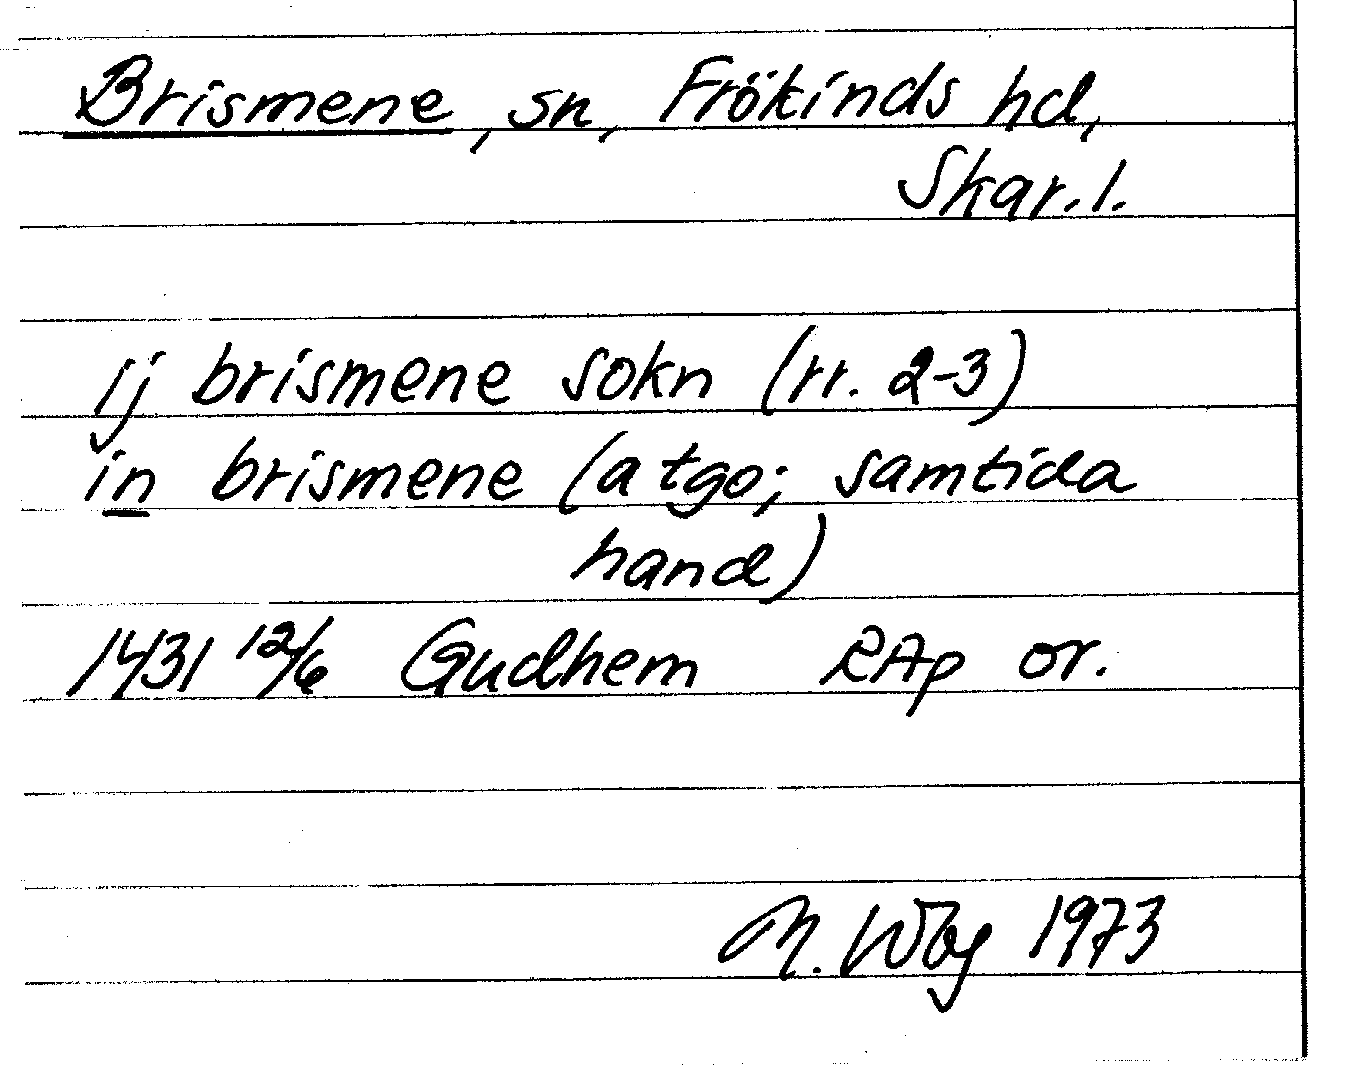 Brismene, sn, Frökinds hd,
Skar. l.
ij brismene sokn (rr. 2-3)
in brismene (a tgo; samtida
hand)
1431 12/6 Gudhem RAp or.
1973